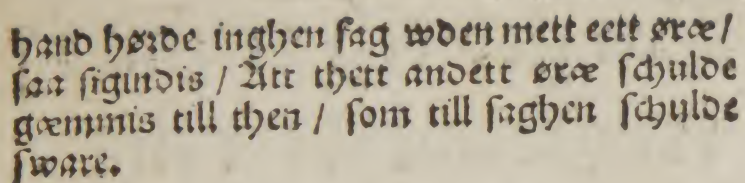 hand hørde inghen sag wden mett eett øræ /
saa sigindis / Att thett andett øræ schulde
gæmmis till then / som till saghen schulde
sware.